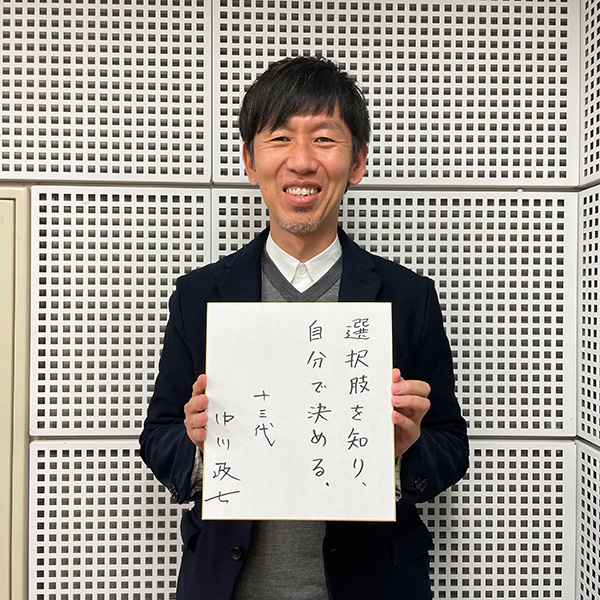 選択肢を知り、
自分で決める。
十三代
中川政七